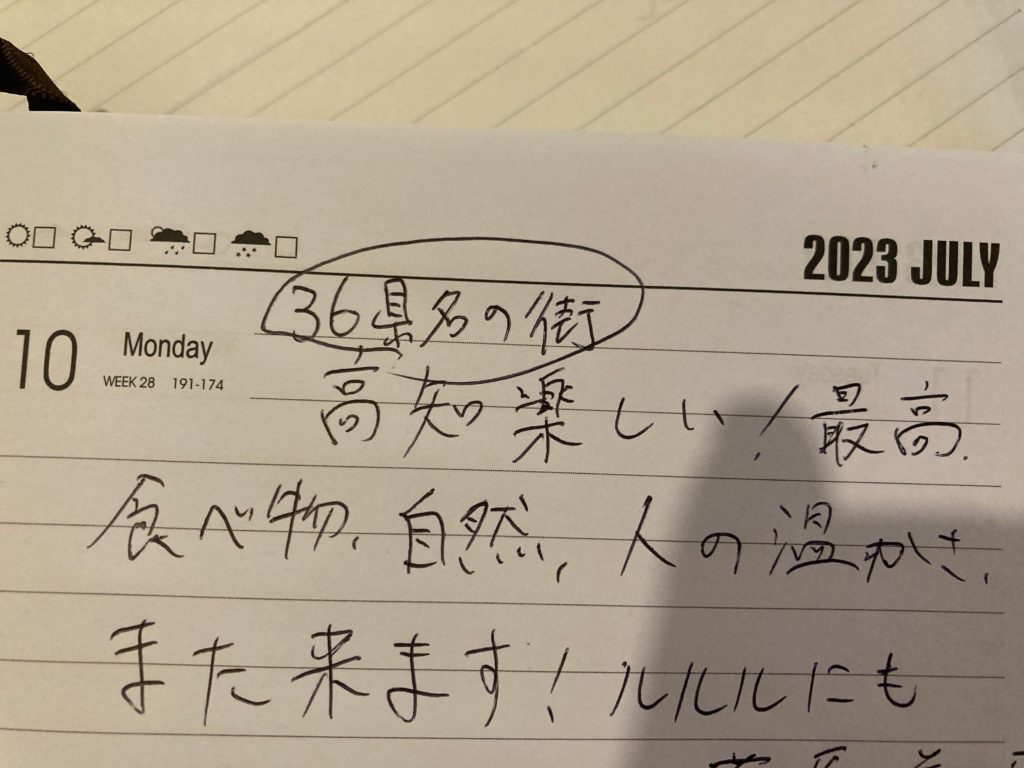 2023 JULY
10 Monday
WEEK 28 191-174
36県名の街
高知楽しい!最高.
食べ物、自然、人の温かさ、
また来ます!ルルルにも